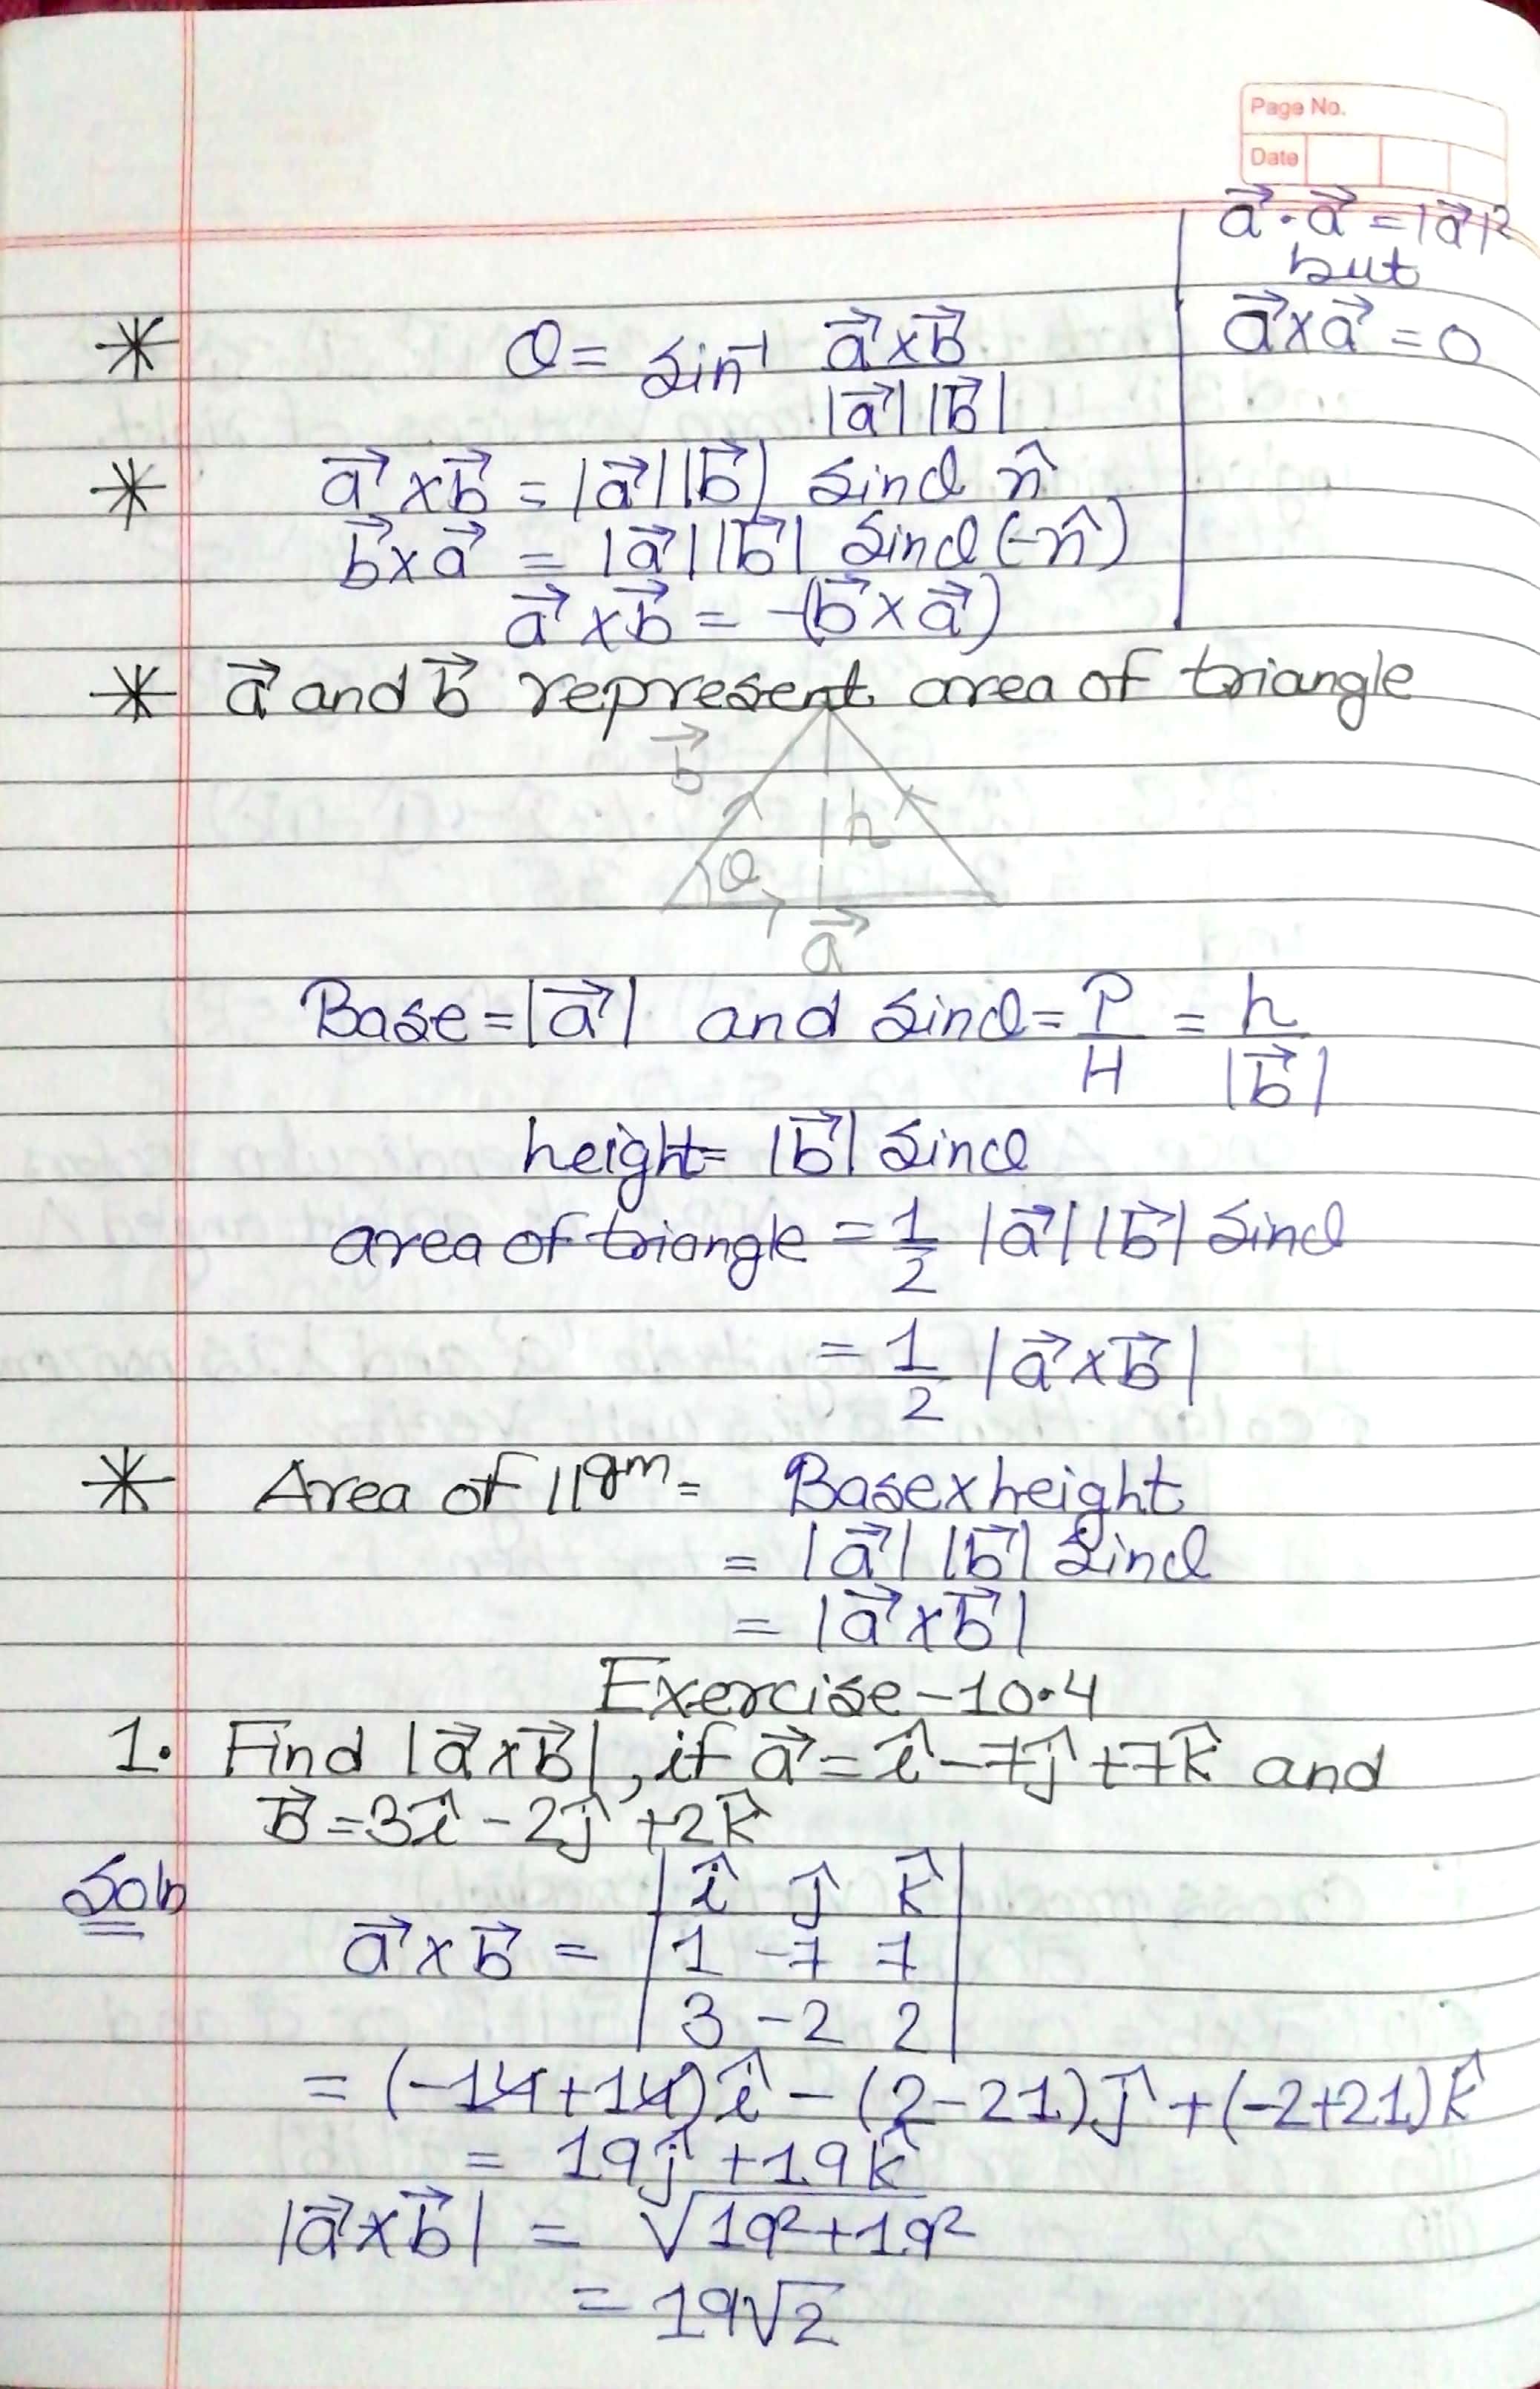 Page No.
Date
a⃗·a⃗ = |a⃗|²
but
a⃗×a⃗ = 0
* θ = sin⁻¹ a⃗×b⃗
|a⃗||b⃗|
* a⃗×b⃗ = |a⃗||b⃗| sinθ n̂
b⃗×a⃗ = |a⃗||b⃗| sinθ(-n̂)
a⃗×b⃗ = -(b⃗×a⃗)
* a⃗ and b⃗ represent area of triangle
b⃗
h
θ
a⃗
Base = |a⃗| and sinθ = P/H = h/|b⃗|
height = |b⃗| sinθ
area of triangle = 1/2 |a⃗||b⃗| sinθ
= 1/2 |a⃗×b⃗|
* Area of ||gm = Base×height
= |a⃗||b⃗| sinθ
= |a⃗×b⃗|
Exercise-10.4
1. Find |a⃗×b⃗|, if a⃗ = î-7ĵ+7k̂ and
b⃗ = 3î-2ĵ+2k̂
Soln
a⃗×b⃗ = | î ĵ k̂ |
| 1 -7 7 |
| 3 -2 2 |
= (-14+14)î - (2-21)ĵ + (-2+21)k̂
= 19ĵ+19k̂
|a⃗×b⃗| = √19²+19²
= 19√2